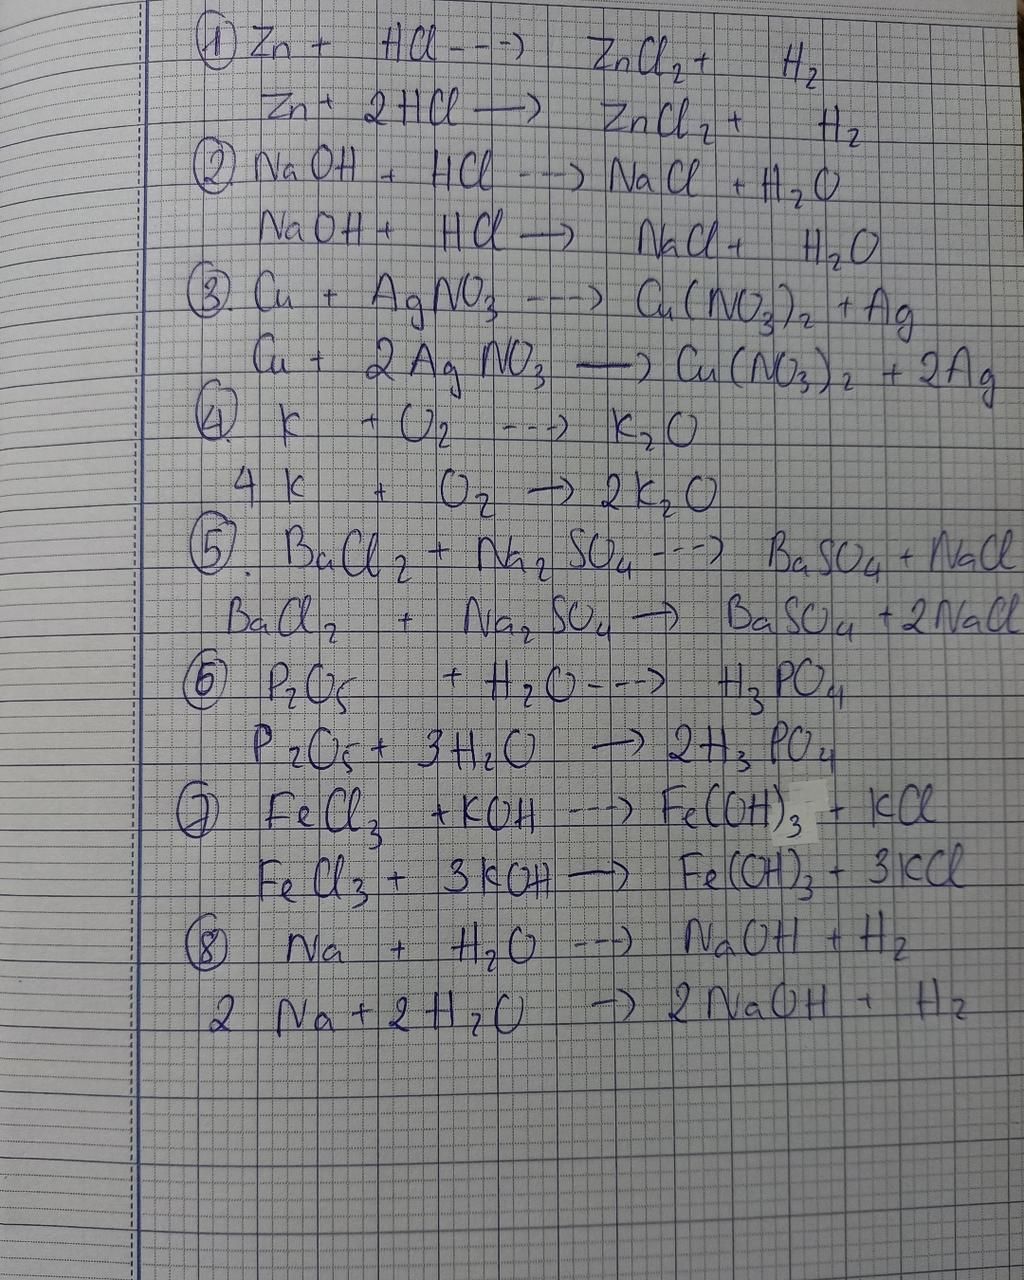 ① Zn + HCl ---> ZnCl₂ + H₂
Zn + 2HCl —> ZnCl₂ + H₂
② NaOH + HCl ---> NaCl + H₂O
NaOH + HCl —> NaCl + H₂O
③ Cu + AgNO₃ ---> Cu(NO₃)₂ + Ag
Cu + 2AgNO₃ —> Cu(NO₃)₂ + 2Ag
④ K + O₂ ---> K₂O
4K + O₂ —> 2K₂O
⑤. BaCl₂ + Na₂SO₄ ---> BaSO₄ + NaCl
BaCl₂ + Na₂SO₄ —> BaSO₄ + 2NaCl
⑥ P₂O₅ + H₂O ---> H₃PO₄
P₂O₅ + 3H₂O —> 2H₃PO₄
⑦ FeCl₃ + KOH ---> Fe(OH)₃ + KCl
FeCl₃ + 3KOH —> Fe(OH)₃ + 3KCl
⑧ Na + H₂O ---> NaOH + H₂
2Na + 2H₂O —> 2NaOH + H₂